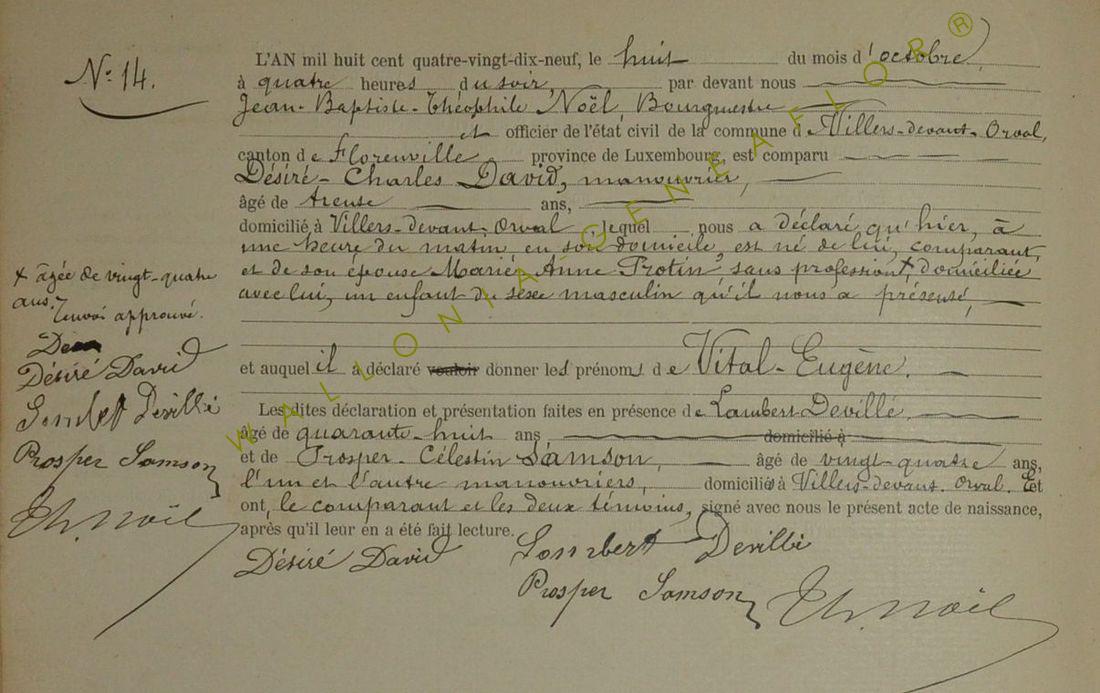 N° 14.
L'AN mil huit cent quatre-vingt-dix-neuf, le huit du mois d'octobre,
à quatre heures du soir, par devant nous
Jean-Baptiste-Théophile Noël, Bourgmestre
et officier de l'état civil de la commune de Villers-devant-Orval,
canton de Florenville province de Luxembourg, est comparu
Désiré-Charles David, manouvrier,
âgé de trente ans,
domicilié à Villers-devant-Orval lequel nous a déclaré qu'hier, à
une heure du matin, en son domicile, est né de lui, comparant,
et de son épouse Marie, Anne Protin, sans profession, + domiciliée
avec lui, un enfant du sexe masculin qu'il nous a présenté,
+ âgée de vingt-quatre
ans. Renvoi approuvé.
Désiré David
Lambert Devillé
Prosper Samson
Th. Noël
et auquel il a déclaré vouloir donner les prénoms de Vital-Eugène.
Les dites déclaration et présentation faites en présence de Lambert Devillé
âgé de quarante-huit ans, domicilié à
et de Prosper-Célestin Samson, âgé de vingt-quatre ans,
l'un et l'autre manouvriers, domiciliés à Villers-devant-Orval. Et
ont, le comparant et les deux témoins, signé avec nous le présent acte de naissance,
après qu'il leur en a été fait lecture.
Désiré David
Lambert Devillé
Prosper Samson
Th. Noël
WALLONIA GENEAFLOR ®